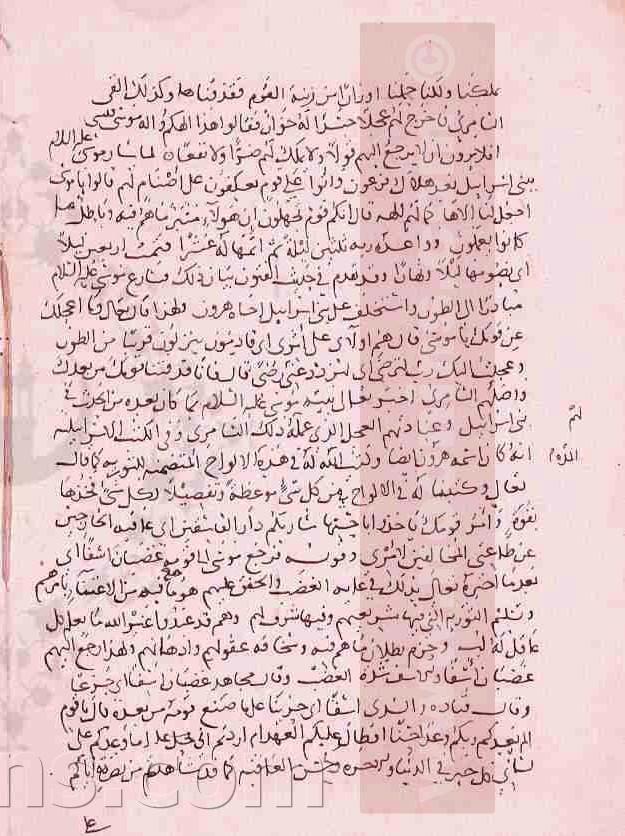 بملكنا ولكنا حملنا اوزارا من زينة القوم فقذفناها وكذلك القى
السامري فاخرج لهم عجلا جسدا له خوار فقالوا هذا الهكم واله موسى فنسي
افلا يرون ان لا يرجع اليهم قولا ولا يملك لهم ضرا ولا نفعا لما سار موسى عليه السلام
ببني اسرائيل بعد هلاك فرعون واتوا على قوم يعكفون على اصنام لهم قالوا يا موسى
اجعل لنا الاها كما لهم الهة قال انكم قوم تجهلون ان هولاء متبر ما هم فيه وباطل ما
كانوا يعملون وواعده ربه ثلثين ليلة ثم اتمها له عشرا فتمت اربعين ليلا
اي يصومها ليلا ونهارا وقد تقدم في حديث الفتون بيان ذلك فسارع موسى عليه السلام
مبادرا الى الطور واستخلف على بني اسرائيل اخاه هرون ولهذا قال تعالى وما اعجلك
عن قومك يا موسى قال هم اولاء على اثري اي قادمون ينزلون قريبا من الطور
وعجلت اليك رب لترضى اي لتزداد عني رضى قال فانا قد فتنا قومك من بعدك
واضلهم السامري اخبر تعالى نبيه موسى عليه السلام بما كان بعده من الحدث في
بني اسرائيل وعبادتهم العجل الذي عمله ذلك السامري وفي الكتب الاسرائيلية
انه كان اسمه هرون ايضا وكتب الله له في هذه الالواح المتضمنة للتورية كما قال
تعالى وكتبنا له في الالواح من كل شي موعظة وتفصيلا لكل شي فخذها
بقوة وأمر قومك ياخذوا باحسنها ساريكم دار الفاسقين اي عاقبة الخارجين
عن طاعتي المخالفين لامري وقوله فرجع موسى الى قومه غضبان اسفا اي
بعد ما اخبره تعالى بذلك في غاية الغضب والحنق عليهم هو فيما هو فيه من الاعتناء بامرهم
وتسلم التورية التي فيها شريعتهم وفيها شرف لهم وهم قد عبدوا غير الله ما يعلم كل
عاقل له لب وحزم بطلان ما هم فيه وسخافة عقولهم واذهانهم ولهذا رجع اليهم
غضبان اسفا والاسف شدة الغضب وقال مجاهد غضبان اسفا اي جزعا
وقال قتادة والسدي اسفا اي حزينا على ما صنع قومه من بعده قال يا قوم
الم يعدكم ربكم وعدا حسنا افطال عليكم العهد ام اردتم ان يحل اي اما وعدكم على
لساني كل خير في الدنيا والاخرة وحسن العاقبة كما قد شاهدتم من نصرته اياكم
ns.com